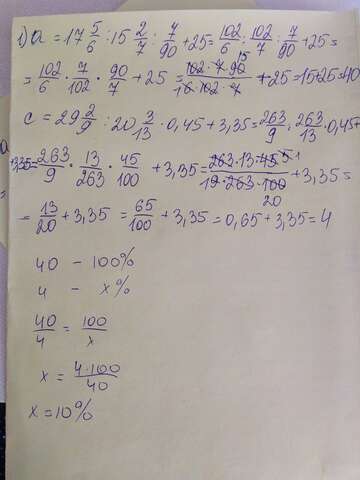 1) a = 17 5/6 : 15 2/7 : 7/90 + 25 = 102/6 : 102/7 : 7/90 + 25 =
= 102/6 · 7/102 · 90/7 + 25 = 102·7·90 15/1 6·102·7 + 25 = 15+25=40
c = 29 2/9 : 20 3/13 · 0,45 + 3,35 = 263/9 : 263/13 · 0,45+
+3,35 = 263/9 · 13/263 · 45/100 + 3,35 = 263·13·45 5 1/1 9·263·100 20 + 3,35 =
= 13/20 + 3,35 = 65/100 + 3,35 = 0,65 + 3,35 = 4
40 - 100%
4 - x%
40/4 = 100/x
x = 4·100/40
x = 10%